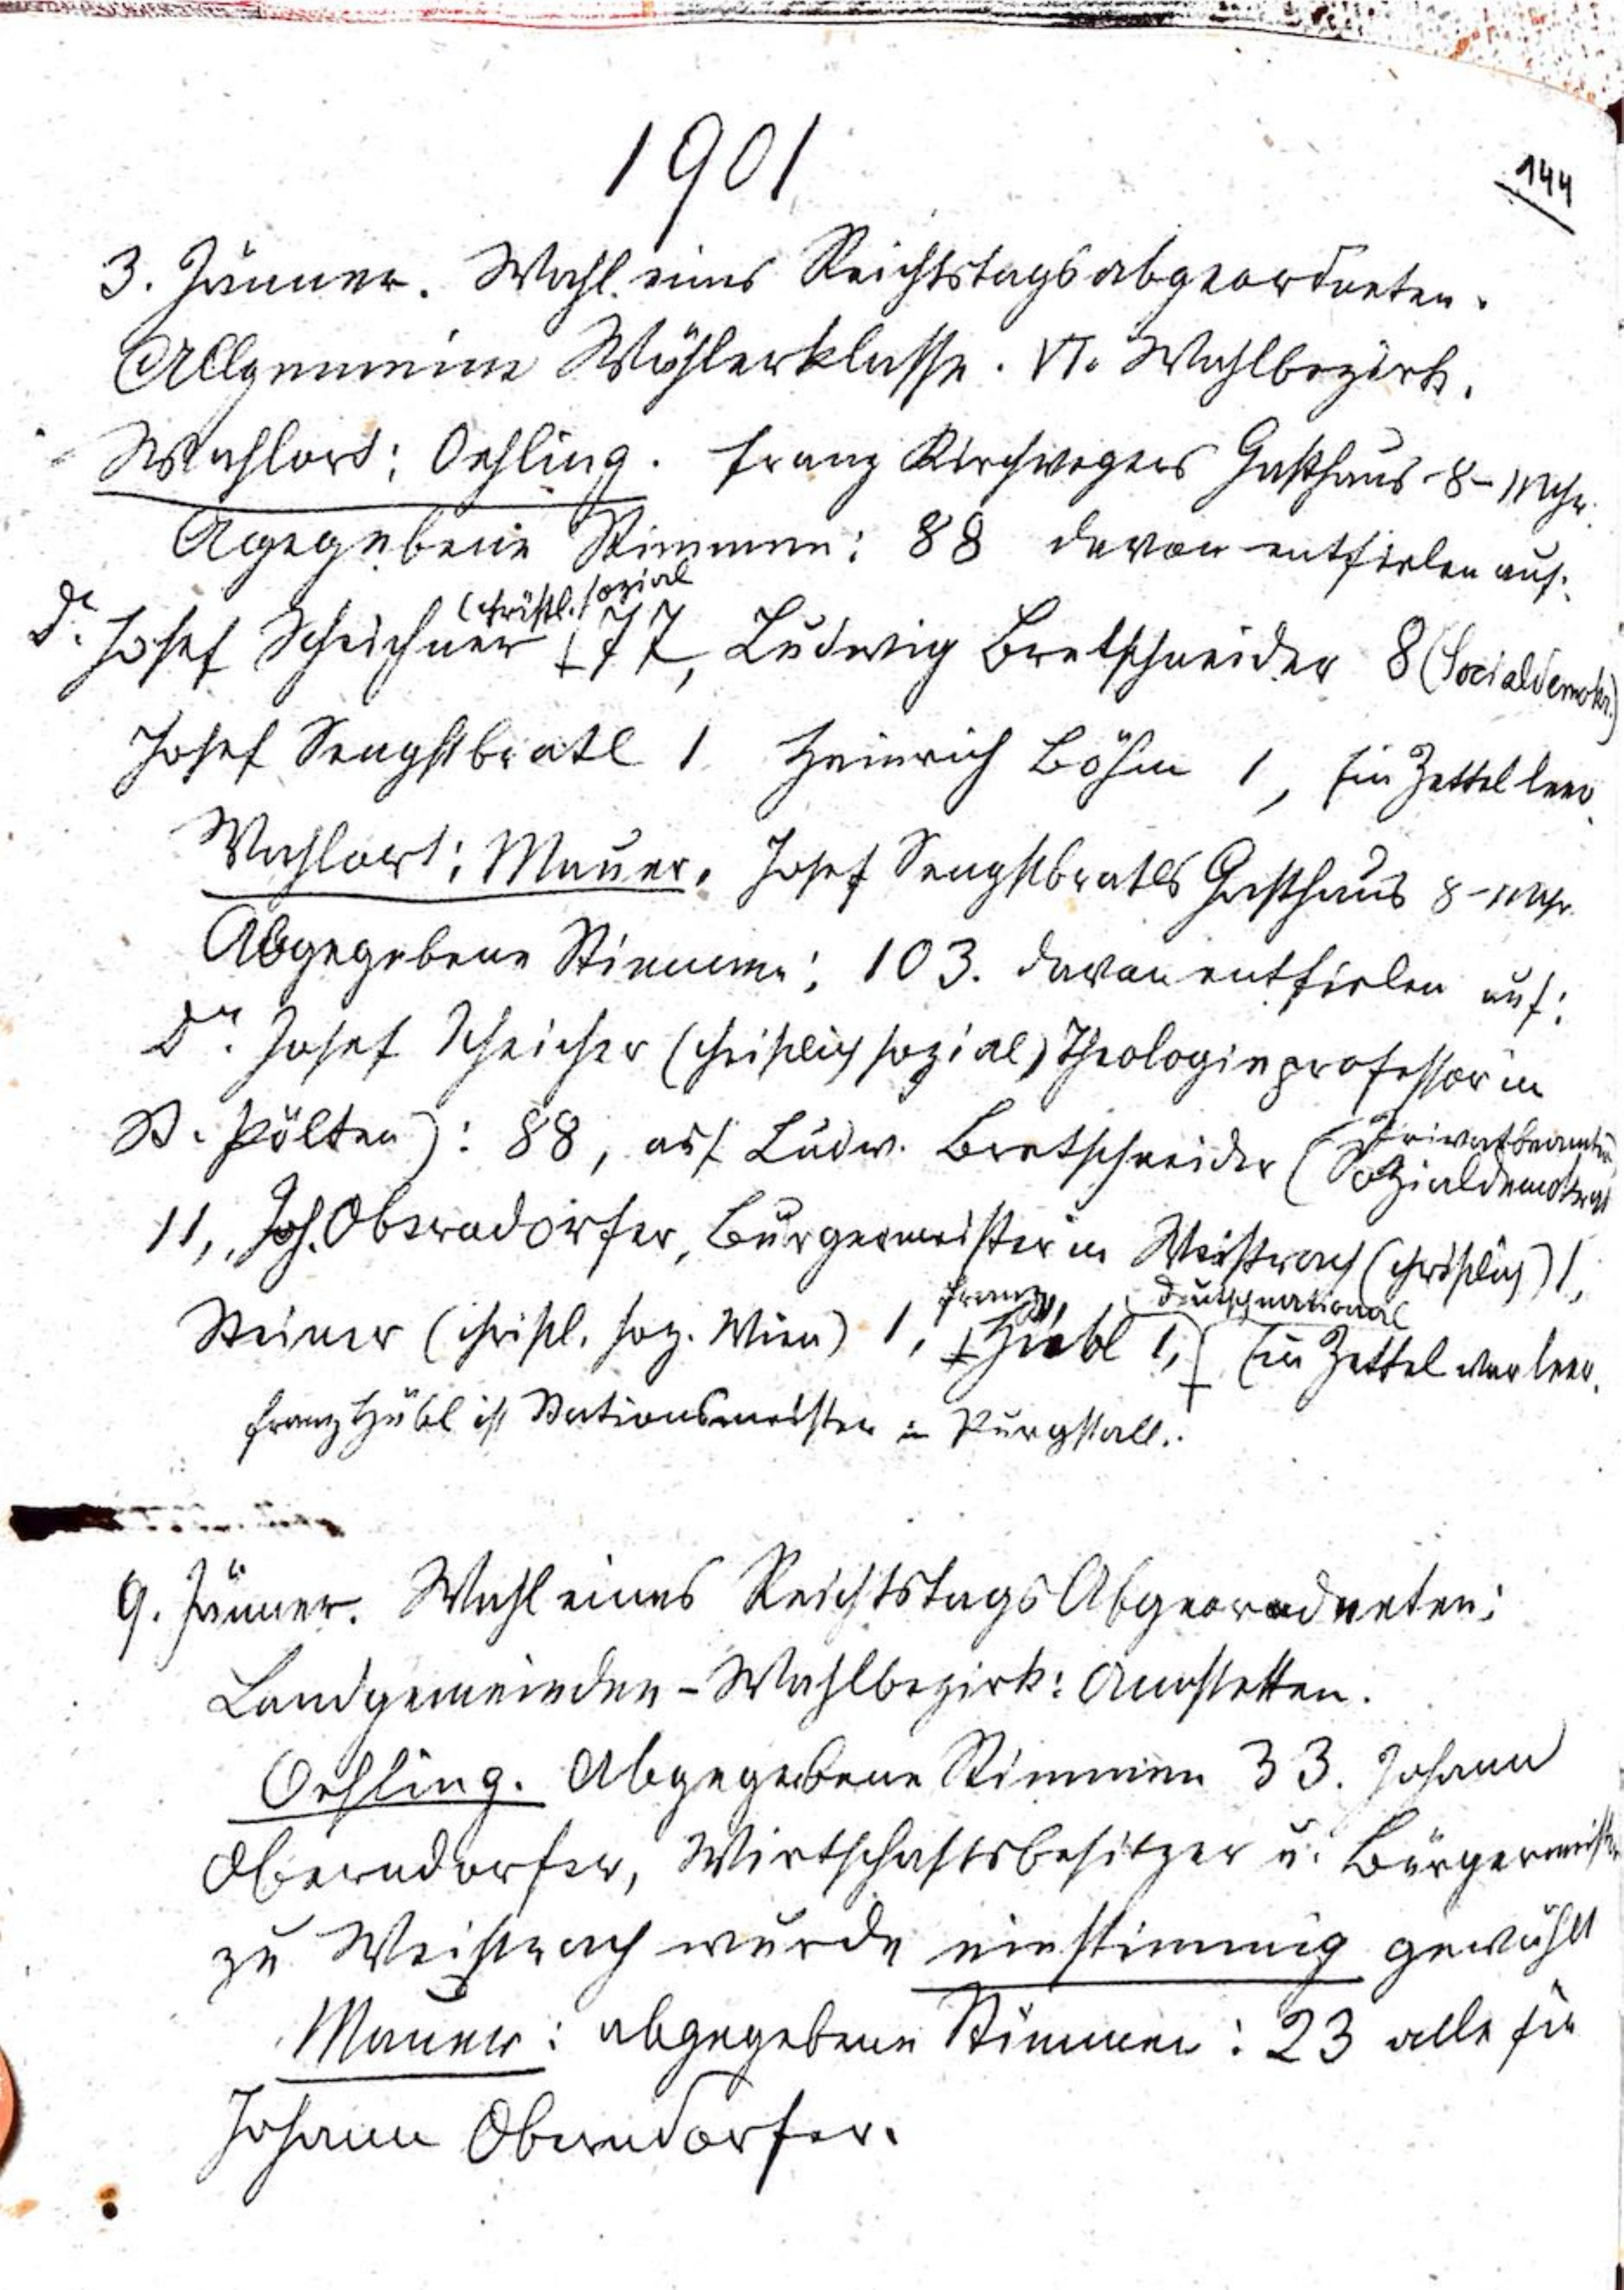 1901
144
3. Jänner. Wahl eines Reichstagsabgeordneten.
Allgemeine Wählerklasse. VI. Wahlbezirk.
Wahlort: Oehling. Franz Kirchwegers Gasthaus 8–11 Uhr.
Agegebene Stimmen: 88 davon entfielen auf:
(christl. sozial
Dr. Josef Scheichner 77, Ludwig Bretschneider 8 (Socialdemokr.)
Josef Sengstbratl 1 Heinrich Böhm 1, ein Zettel leer.
Wahlort: Mauer. Josef Sengstbratls Gasthaus 8–11 Uhr.
Abgegebene Stimmen: 103. davon entfielen auf:
Dr. Josef Scheicher (christlich sozial) Theologieprofessor in
St. Pölten): 88, auf Ludw. Bretschneider (Privatbeamter
Sozialdemokrat
11, Joh. Oberndorfer, Bürgermeister in Weistrach (christlich) 1,
Franz deutschnational
Steiner (christl. soz. Wien) 1, Hübl 1, ein Zettel war leer.
Franz Hübl ist Stationsmeister in Purgstall.
9. Jänner. Wahl eines Reichstags Abgeordneten:
Landgemeinden-Wahlbezirk: Amstetten.
Oehling. Abgegebene Stimmen 33. Johann
Oberndorfer, Wirtschaftsbesitzer u. Bürgermeister
zu Weistrach wurde einstimmig gewählt
Mauer: abgegebene Stimmen: 23 alle für
Johann Oberndorfer.